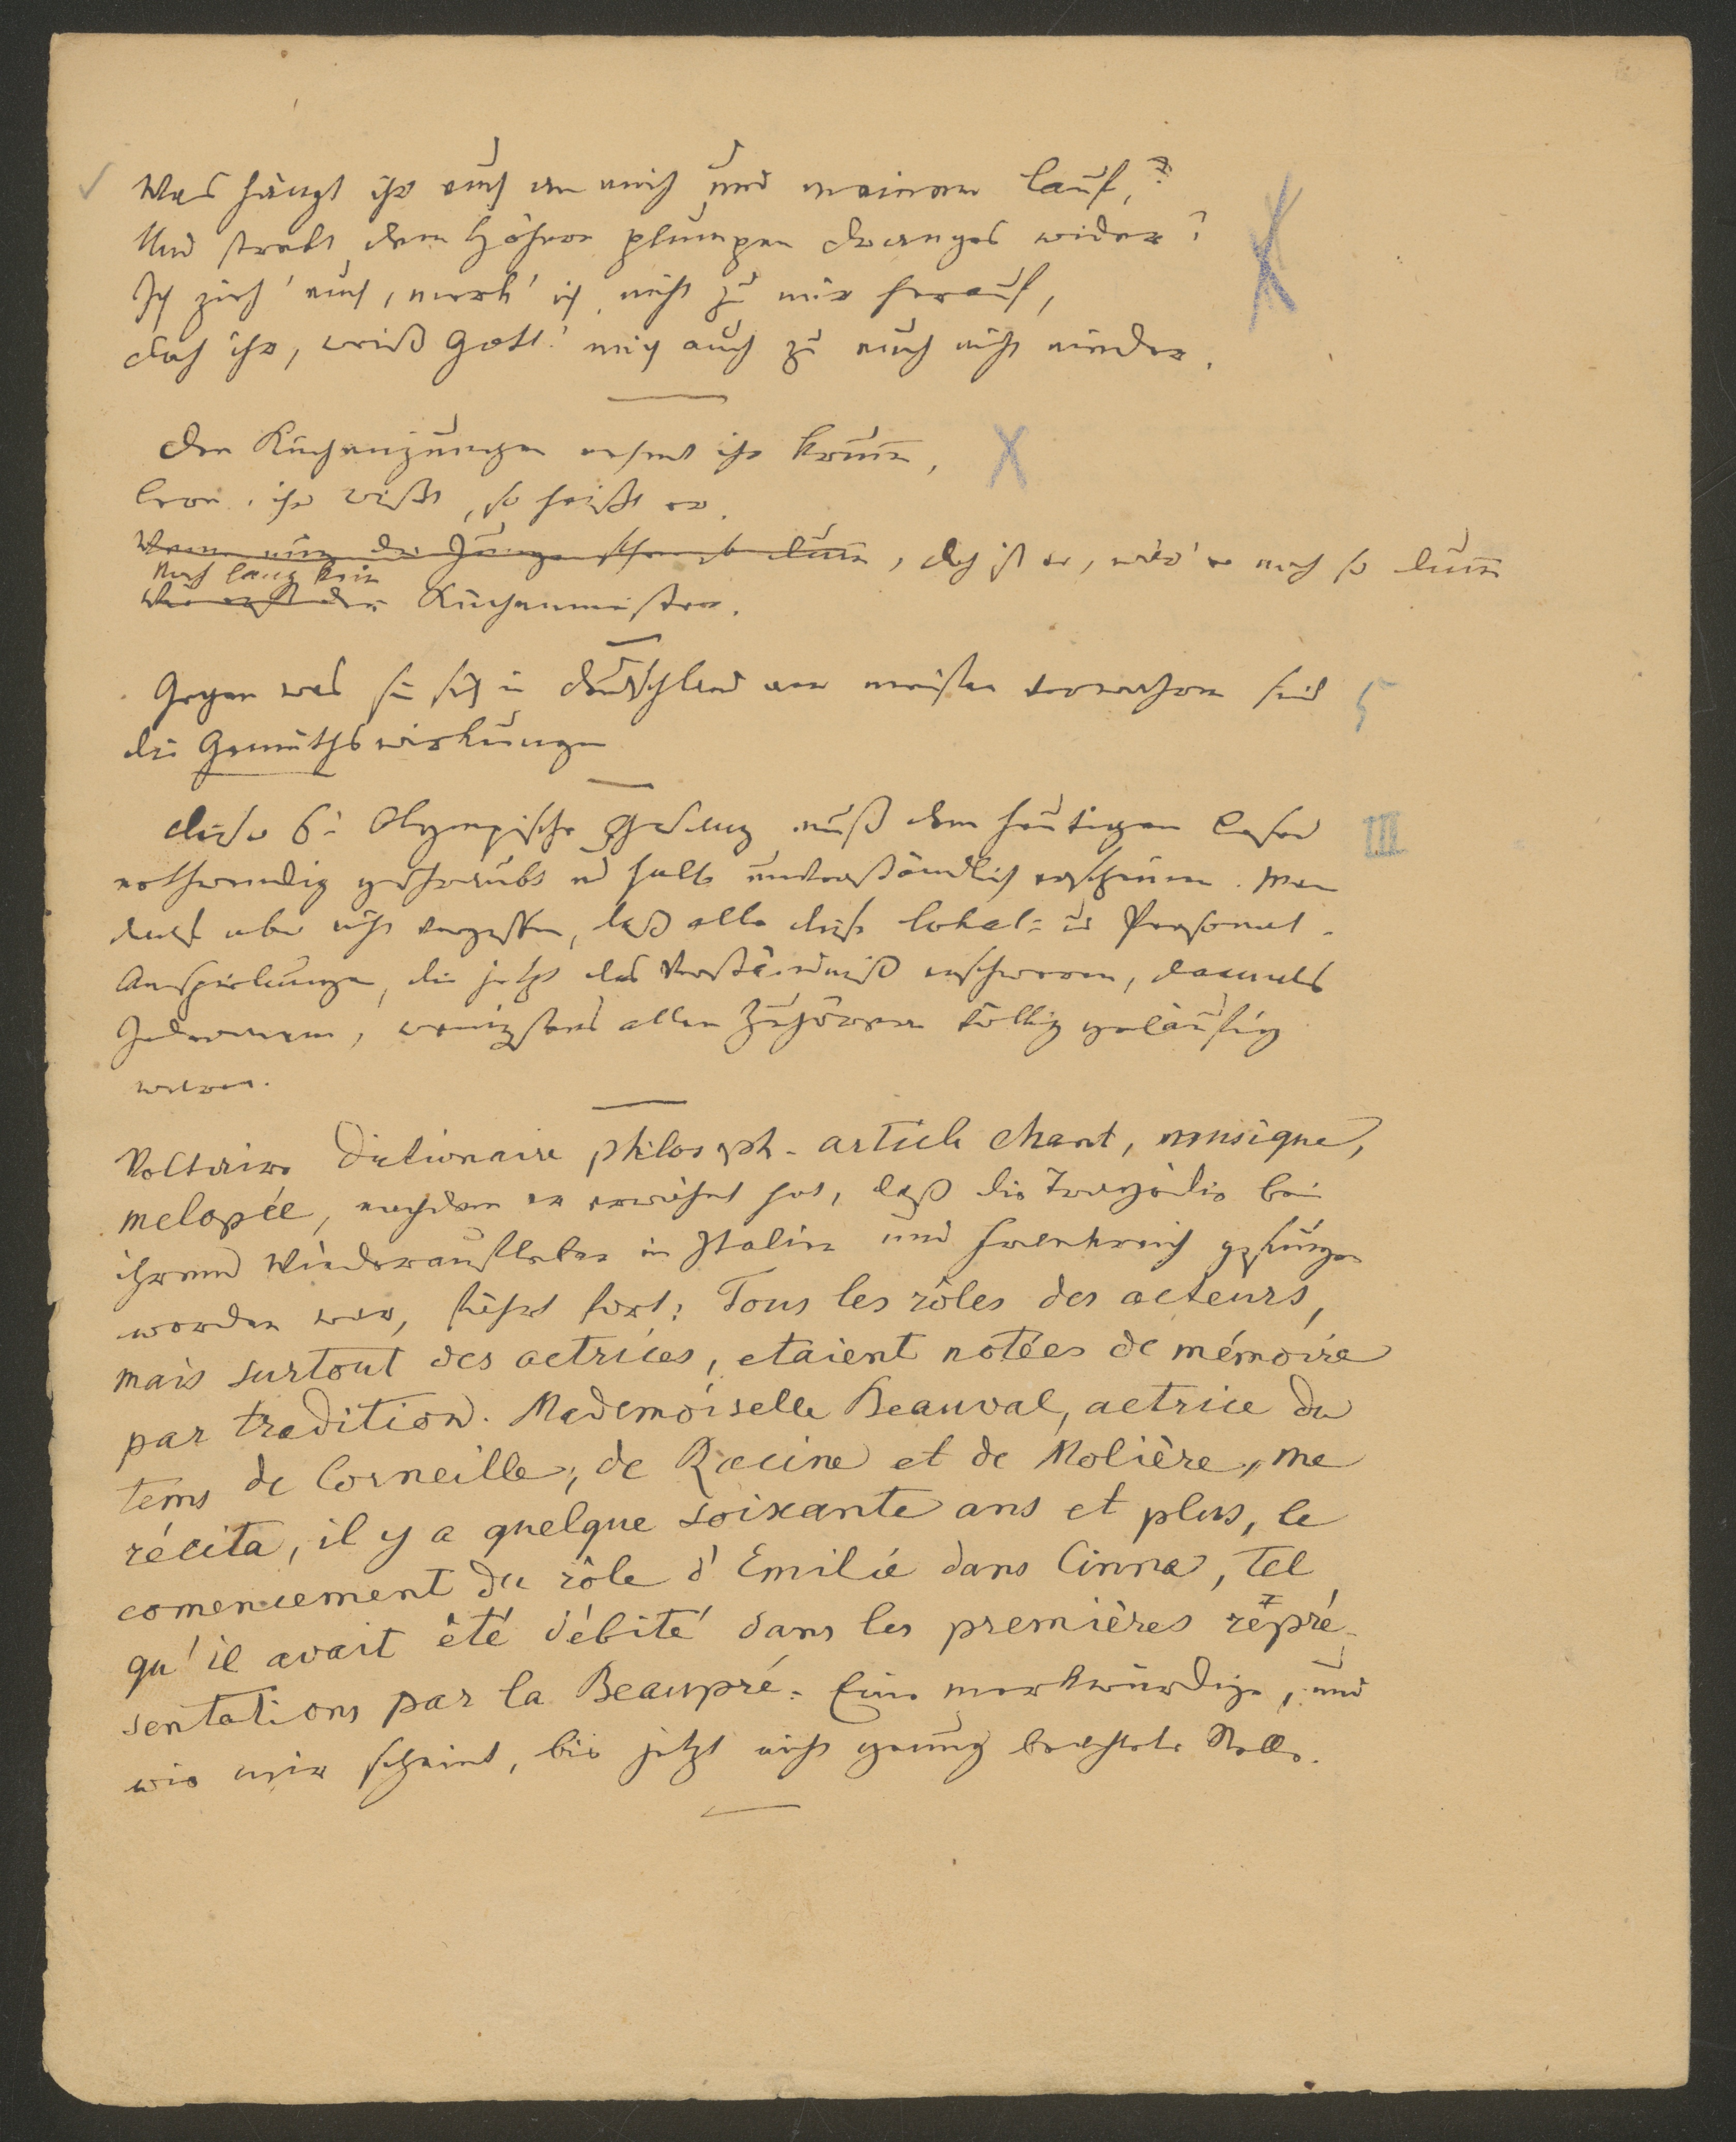 Was hängt ihr euch an mich und meinen Lauf,?
Und strebt dem Höhern plumpen Dranges wider?
Ich zieh' euch, merk' ich, nicht zu mir herauf,
Doch ihr, weiß Gott! mich auch zu euch nicht nieder.
Den Küchenjungen nehmt ihr krumm,
Leon, ihr wißt, so heißt er.
Wenn nun der Junge schrieb dumm, doch ist er, wär' er noch so dumm
Noch lang kein
Küchenmeister.
Gegen was sie sich in Deutschland am meisten verwahren sind 5
die Gemüthswirkungen
Diese 6te Olympische Gesang muß dem heutigen Leser III
nothwendig geschraubt und halb unverständlich erscheinen. Man
darf aber nicht vergessen, daß alle diese Lokal- und Personal-
Anspielungen, die jetzt das Verständniß erschweren, damals
Jedermann, wenigstens allen Zuhörern völlig geläufig
waren.
Voltaire Dictionaire philosoph. article chant, musique,
melopée, nachdem er erwähnt hat, daß die Tragödie bei
ihrem Wiederaufleben in Italien und Frankreich gesungen
worden war, fährt fort: Tous les rôles des acteurs,
mais surtout des actrices, etaient notées de mémoire
par tradition. Mademoiselle Beauval, actrice du
tems de Corneille, de Racine et de Molière, me
récita, il y a quelque soixante ans et plus, le
comencement du rôle d'Emilie dans Cinna, tel
qu'il avait été débité dans les premières répré-
sentations par la Beaupré. Eine merkwürdige, und
wie mir scheint, bis jetzt nicht genug beachtete Stelle.